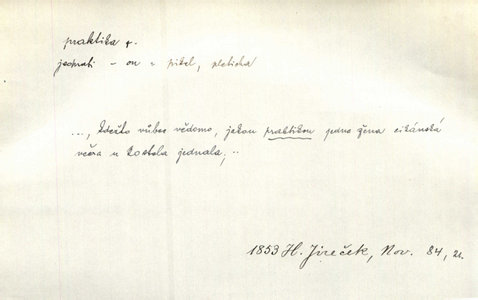 praktika f.
jednati – on i pikel, pleticha
..., kdežto vůbec vědomo, jakou praktikou jedna žena cikánská
včera u kostela jednala, ..
1853 H. Jireček, Nov. 84, 21.